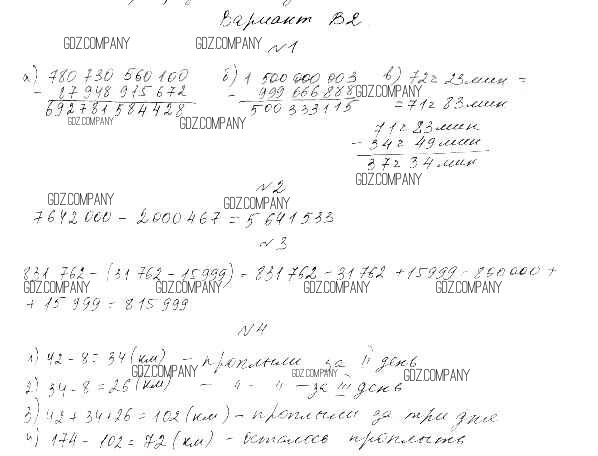 Вариант В2.
GDZ.COMPANY GDZ.COMPANY
№1
а) 780 730 560 100 б) 1 500 000 003 в) 72ч 23мин =
- 87 948 975 672 - 999 666 888 = 71ч 83мин
GDZ.COMPANY
692781 584 428 500 333 115
GDZ.COMPANY GDZ.COMPANY
71ч 83мин
- 34ч 49мин
37ч 34мин
GDZ.COMPANY
№2
GDZ.COMPANY GDZ.COMPANY
7642 000 - 2000 467 = 5 641 533
№3
831 762 - (31 762 - 15 999) = 831 762 - 31 762 + 15999 = 800 000 +
GDZ.COMPANY GDZ.COMPANY GDZ.COMPANY GDZ.COMPANY
+ 15 999 = 815 999
№4
1) 42 - 8 = 34 (км) - проплыли за II день
GDZ.COMPANY GDZ.COMPANY GDZ.COMPANY
2) 34 - 8 = 26 (км) - " - " - за III день
3) 42 + 34 + 26 = 102 (км) - проплыли за три дня
4) 174 - 102 = 72 (км) - осталось проплыть